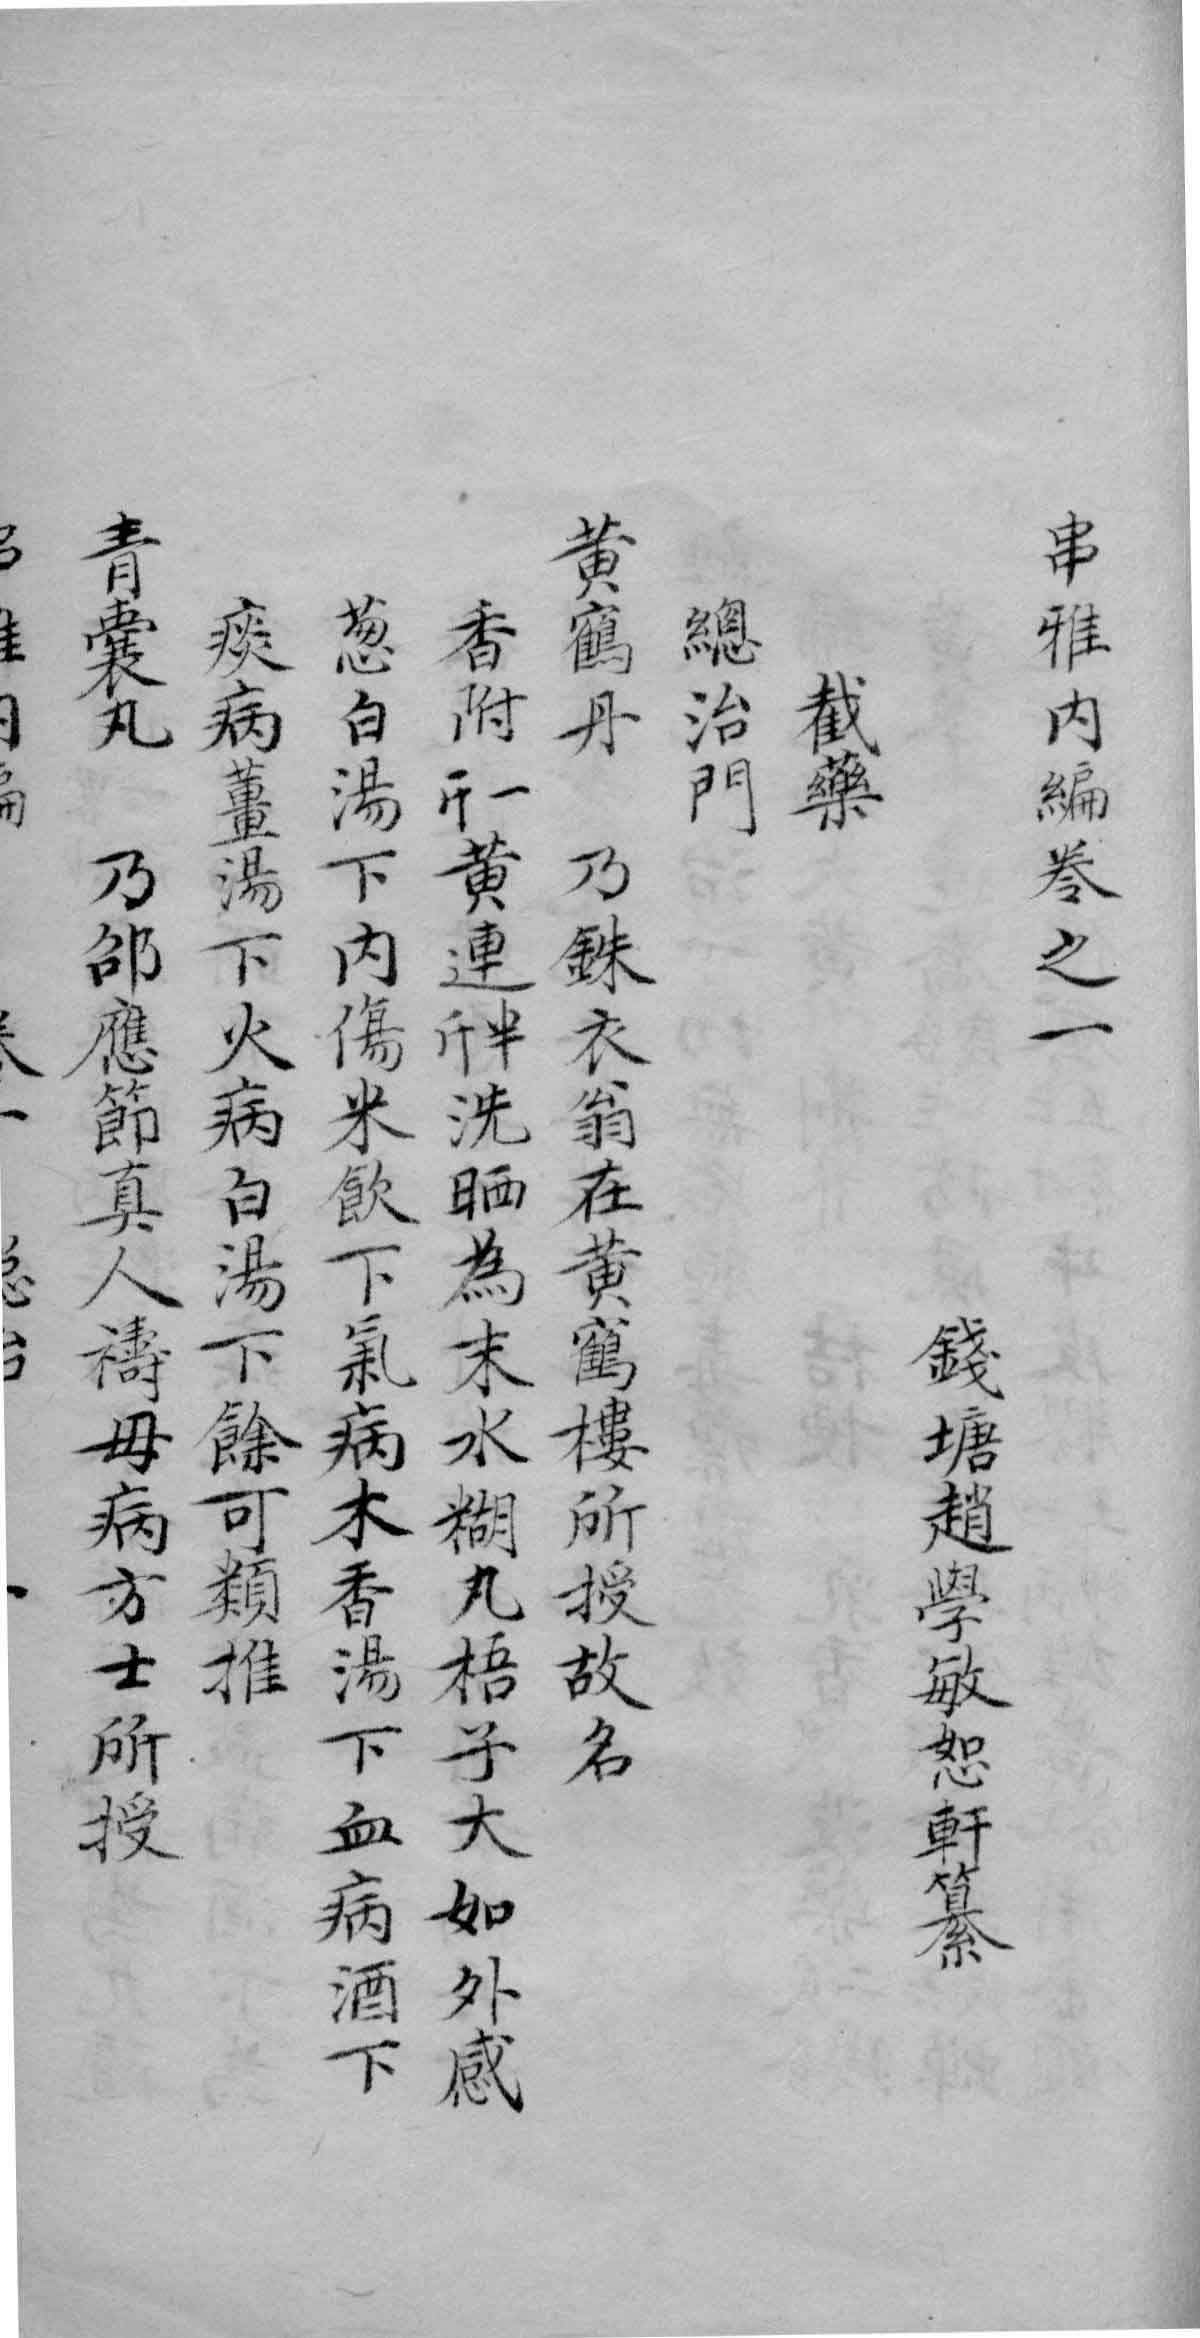 串雅内編卷之一
錢塘趙學敏恕軒纂
截藥
總治門
黄鶴丹　乃銖衣翁在黄鶴樓所授故名
香附一斤黄連半斤洗晒為末水糊丸梧子大如外感
葱白湯下内傷米飲下氣病木香湯下血病酒下
痰病薑湯下火病白湯下餘可類推
青囊丸　乃邵應節真人禱母病方士所授